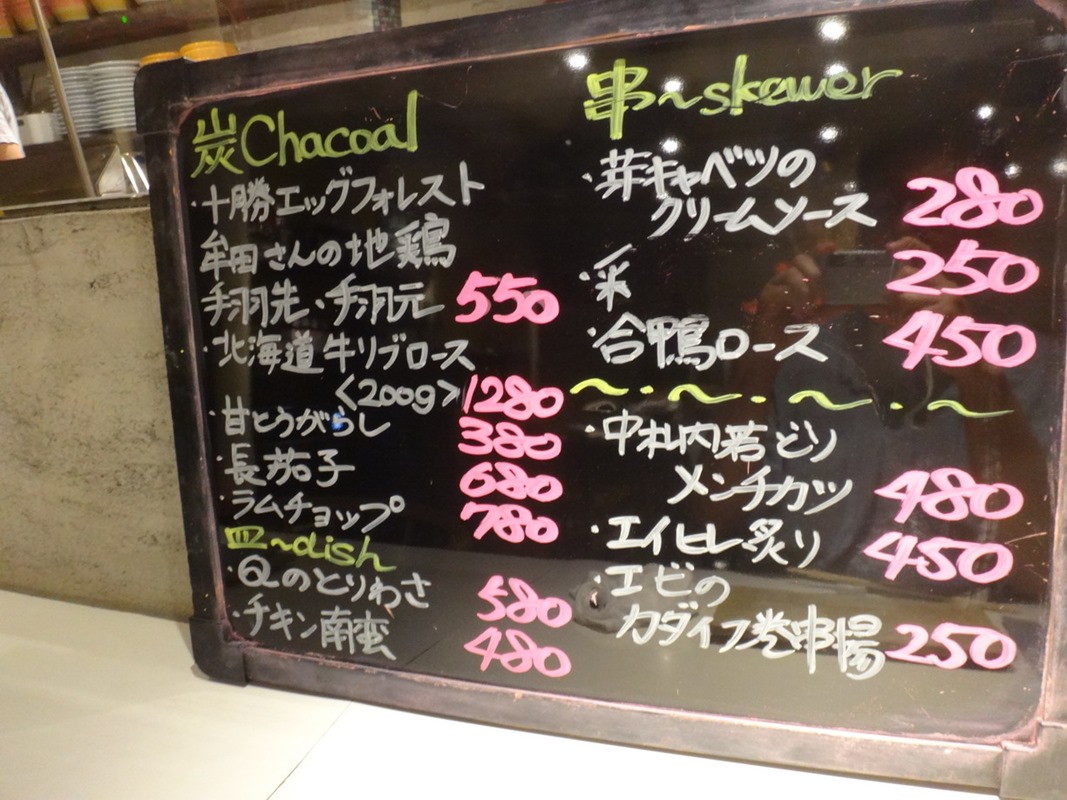 炭Chacoal
・十勝エッグフォレスト
牟田さんの地鶏
手羽先、手羽元 550
・北海道牛リブロース
<200g> 1280
・甘とうがらし 380
・長茄子 680
・ラムチョップ 780
皿~dish
・Qのとりわさ 580
・チキン南蛮 480
串~skewer
・芽キャベツの
クリームソース 280
・采 250
・合鴨ロース 450
～・～・～・～
・中札内若どり
メンチカツ 480
・エイヒレ炙り 450
・エビの
カダイフ巻串揚 250